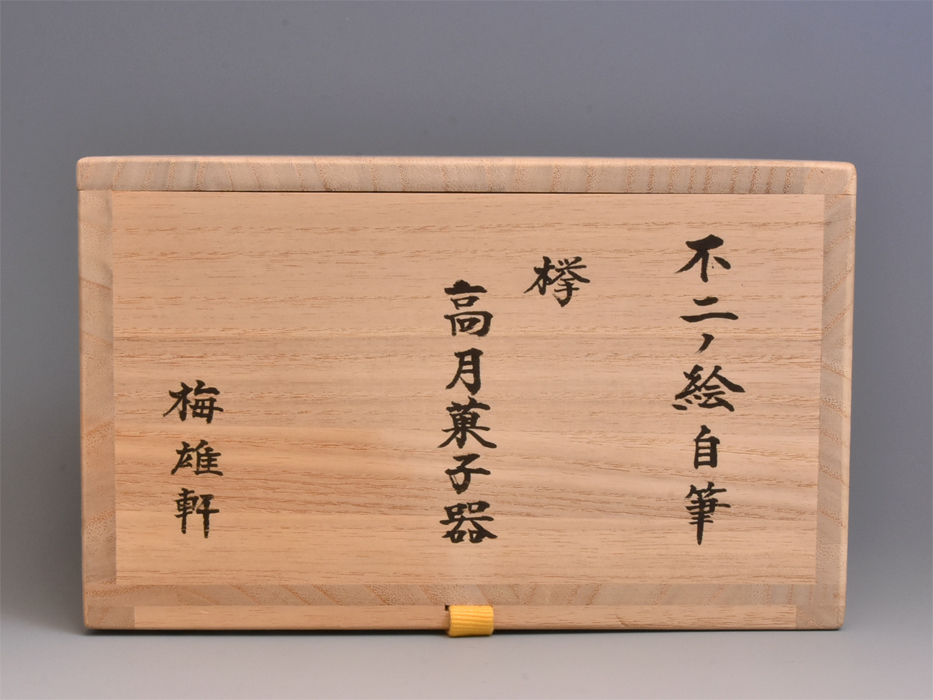 不二ノ絵自筆
欅
高月菓子器
梅雄軒